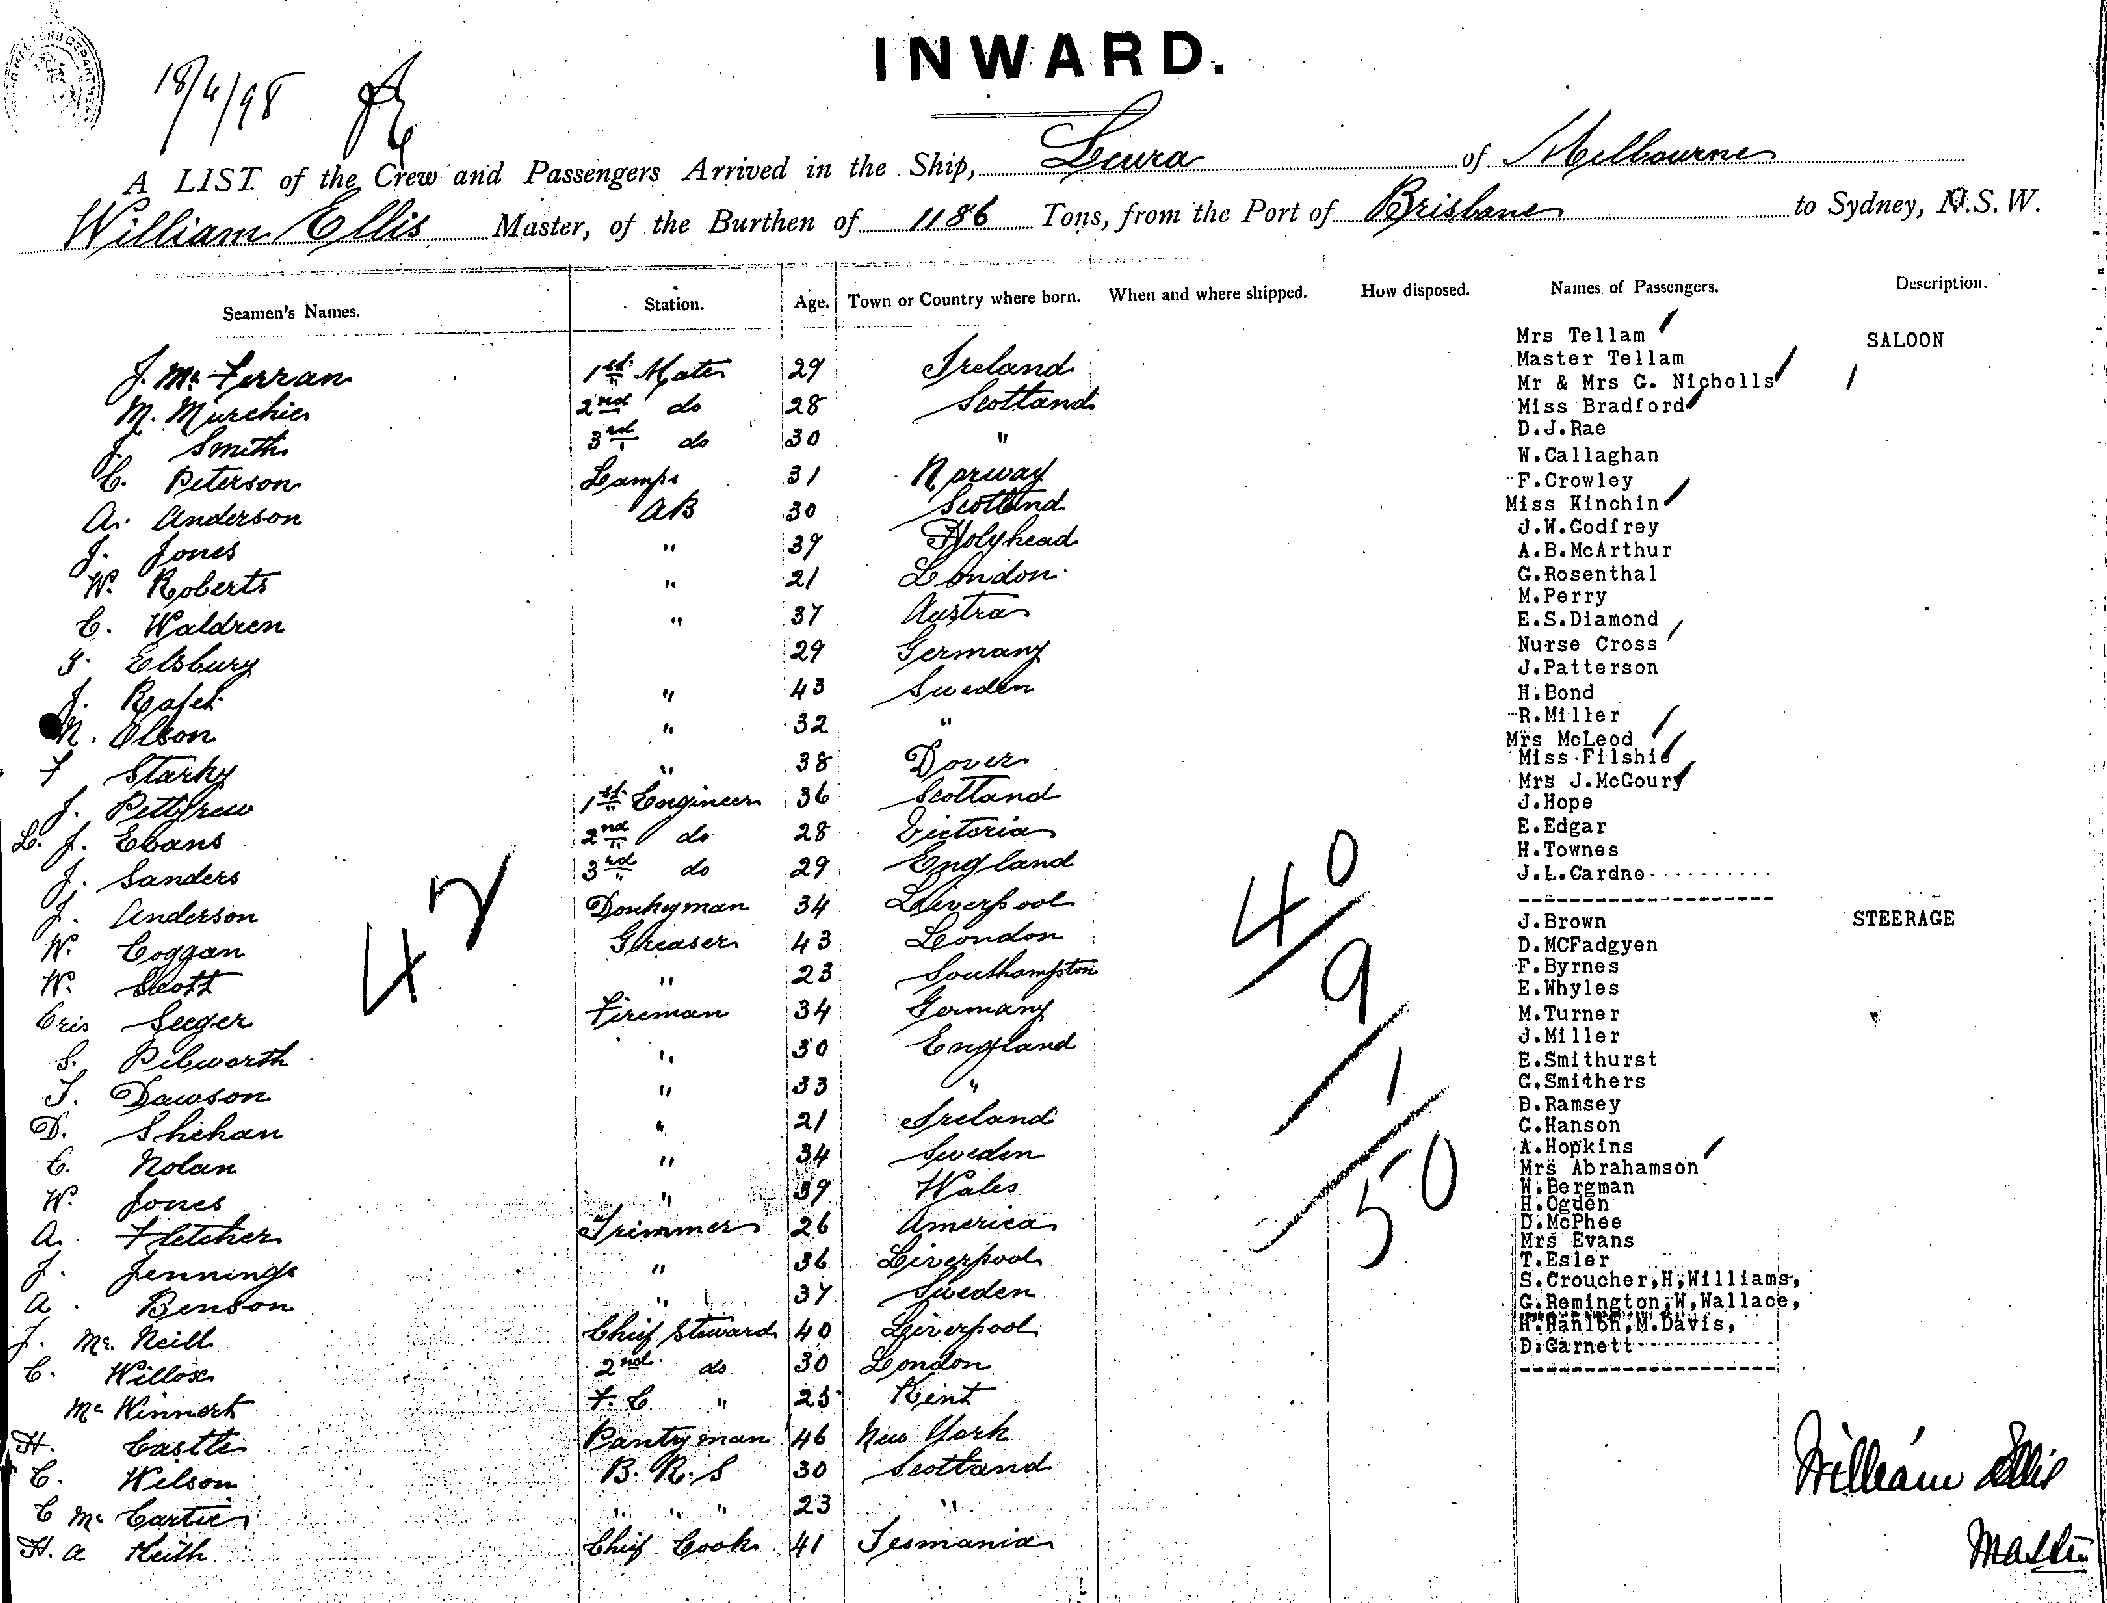 INWARD.
18/4/98
A LIST of the Crew and Passengers Arrived in the Ship, Leura of Melbourne
William Ellis Master, of the Burthen of 1186 Tons, from the Port of Brisbane to Sydney, N.S.W.
Seamen's Names. Station. Age. Town or Country where born. When and where shipped. How disposed. Names of Passengers. Description.
J. Mc Ferran 1st Mate 29 Ireland
M. Murchie 2nd do 28 Scotland
J. Smith 3rd do 30 "
C. Peterson Lamps 31 Norway
A. Anderson AB 30 Scotland
J. Jones " 39 Holyhead
W. Roberts " 21 London
C. Waldren " 37 Austra
F. Elsbury 29 Germany
J. " 43 Sweden
N. Olson " 32 "
F Starky " 38 Dover
J. Pettigrew 1st Engineer 36 Scotland
L. J. Evans 2nd do 28 Victoria
J. Sanders 3rd do 29 England
J. Anderson Donkyman 34 Liverpool
W. Coggan Greaser 43 London
W. Scott " 23 Southampton
Cris Seeger Fireman 34 Germany
S. Pilworth " 30 England
T. Dawson " 33 "
D. Shehan " 21 Ireland
C. Nolan " 34 Sweden
W. Jones " 39 Wales
A. Fletcher Trimmer 26 America
J. Jennings " 36 Liverpool
A. Benson " 37 Sweden
J. Mc Neill Chief Steward 40 Liverpool
C. Willox 2nd do 30 London
Mc Kinnert F. C " 25 Kent
H. Castle Pantryman 46 New York
C. Wilson B. R. S 30 Scotland
C Mc Cartie " " " 23 "
H. A Keith Chief Cook 41 Tesmania
42
40
9
1
50
Mrs Tellam SALOON
Master Tellam
Mr & Mrs G. Nicholls
Miss Bradford
D.J.Rae
W.Callaghan
F.Crowley
Miss Kinchin
J.W.Godfrey
A.B.McArthur
G.Rosenthal
M.Perry
E.S.Diamond
Nurse Cross
J.Patterson
H.Bond
R.Miller
Mrs McLeod
Miss Filshie
Mrs J.McGoury
J.Hope
E.Edgar
H.Townes
J.L.Cardno
J.Brown STEERAGE
D.MCFadgyen
F.Byrnes
E.Whyles
M.Turner
J.Miller
E.Smithurst
C.Smithers
D.Ramsey
C.Hanson
A.Hopkins
Mrs Abrahamson
W.Bergman
H.Ogden
D.McPhee
Mrs Evans
T.Esler
S.Croucher,H,Williams,
G.Remington,W,Wallace,
H.Hanlon,M.Davis,
D.Garnett
William Ellis
Master